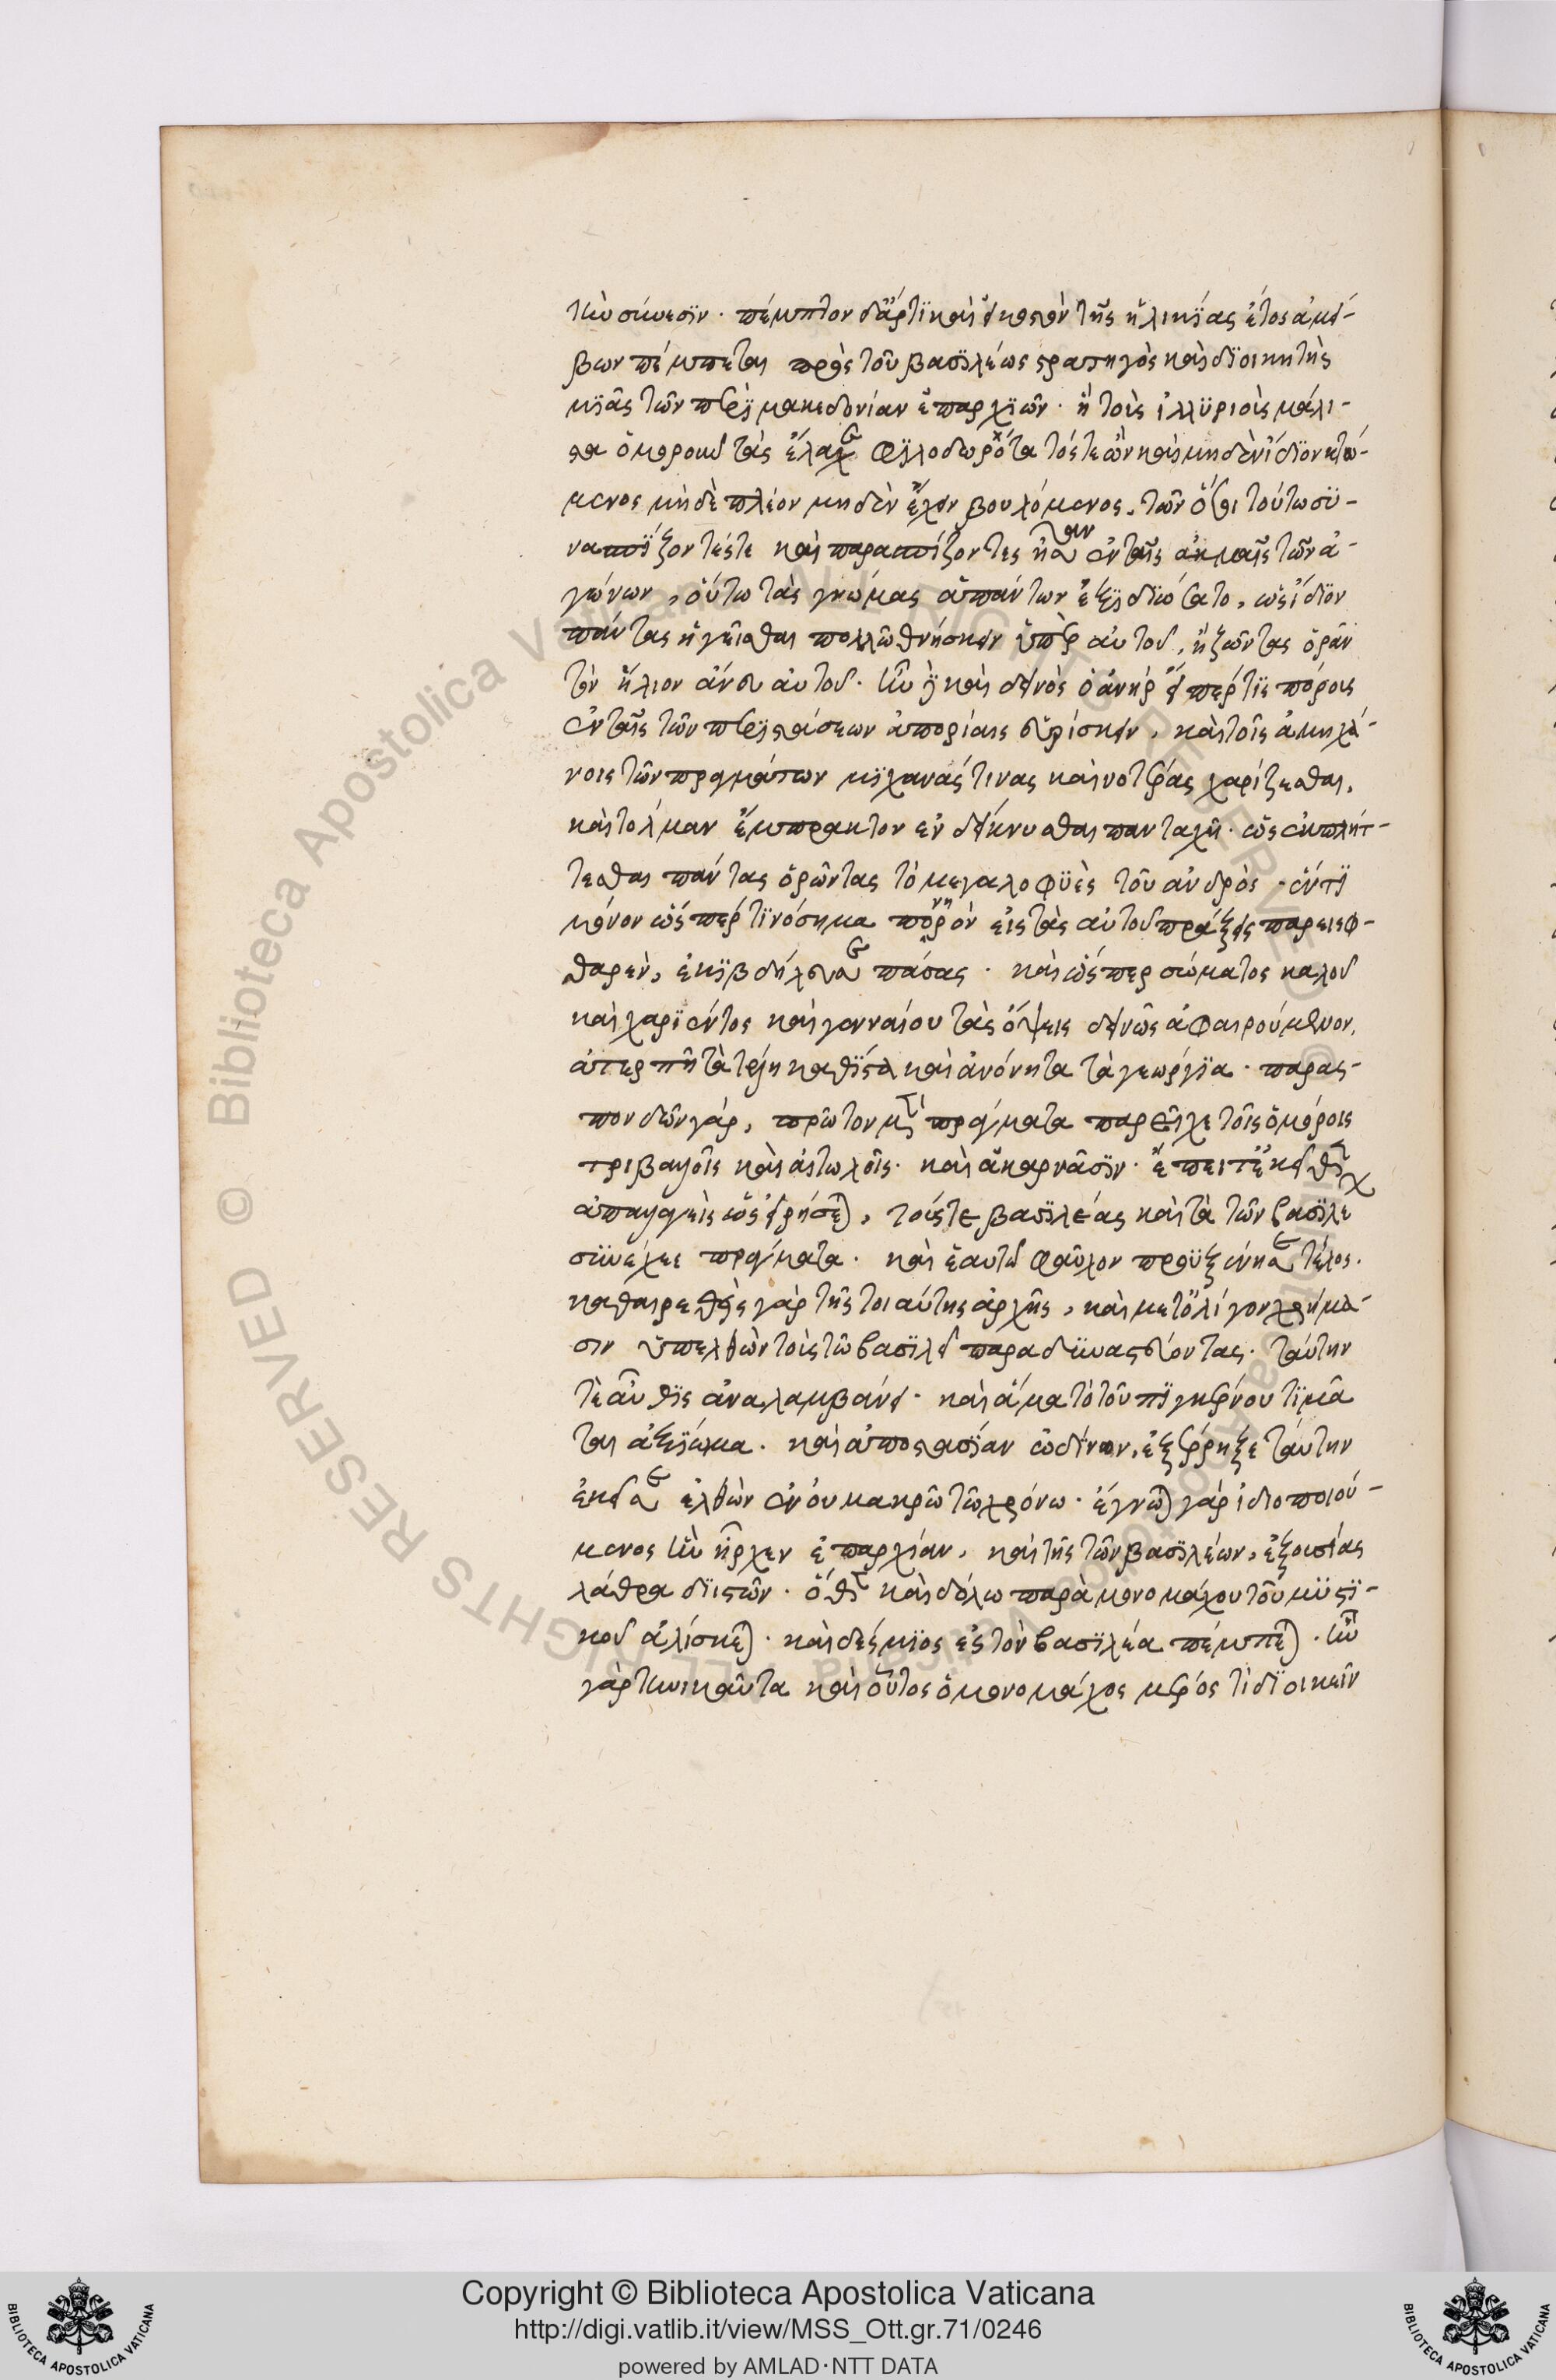 τὴν σύνεσϊν · πέμπτον δ' ἄρτϊ καὶ εἰκοστὸν τῆς ἡλικίας ἔτος ἀμεί-
βων πέμπεται πρὸς τοῦ βασϊλέως στρατηγὸς καὶ διοικητὴς
μϊᾶς τῶν περὶ μακεδονίαν ἐπαρχϊῶν · ἣ τοῖς ἰλλϋριοῖς μάλι-
στα ὁμοροῦντας φϊλοδωρότατός τε ὢν καὶ μηδὲν ἴδϊον κτώ-
μενος μηδὲ πλέον μηδὲν ἔχειν βουλόμενος, τῶν ὅσοι τούτω σϋ-
νασπΐζοντές τε καὶ παρασπίζοντες ἦσαν ἐν ταῖς ἀκμαῖς τῶν ἀ-
γώνων, οὕτω τὰς γνώμας ἁπάντων ἐξϊδϊώσατο, ὡς ἴδϊον
πάντας ἡγεῖσθαι πολλῶ θνήσκειν ὑπὲρ αὐτοῦ, ἢ ζῶντας ὁρᾶν
τὸν ἥλιον ἄνευ αὐτοῦ · ἦν γὰρ καὶ δεινὸς ὁ ἀνὴρ εἴπέρ τϊς πόροις
ἐν ταῖς τῶν περιστάσεων ἀπορίαις εὑρίσκειν, καὶ τοῖς ἀμηχά-
νοις τῶν πραγμάτων μϊχανάς τινας καινοτέρας χαρίζεσθαι,
καὶ τόλμαν ἔμπρακτον ἐνδείκνυσθαι πανταχῆ · ὡς ἐκπλήτ-
τεσθαι πάντας ὁρῶντας τὸ μεγαλοφϋὲς τοῦ ἀνδρὸς · ἕν τϊ
μόνον ὥσπέρ τϊ νόσημα πονηρὸν εἰς τὰς αὐτοῦ πράξεις παρεισφ-
θαρὲν, ἐκϊβδήλευσε πάσας · καὶ ὥσπερ σώματος καλοῦ
καὶ χαρϊέντος καὶ γενναίου τὰς ὄψεις δεινῶς ἀφαιρούμενον,
ἀτερπῆ τὰ τέλη καθΐστα καὶ ἀνόνητα τὰ γεωργϊα · παρασ-
πονδῶν γὰρ, πρῶτον μέντοι πράγματα παρεῖχε τοῖς ὁμόροις
τριβαλοῖς καὶ αἰτωλοῖς · καὶ ἀκαρνᾶσϊν · ἔπειτ' ἐκεῖθεν
ἀπαλλαγεὶς ὡς εἰρήσεται, τούς τε βασϊλέας καὶ τὰ τῶν βασϊλέ
σϋνέχεε πράγματα · καὶ ἑαυτῶ φαῦλον προϋξένησε τέλος.
καθαιρεθεὶς γὰρ τῆς τοιαύτης ἀρχῆς, καὶ μετ' ὀλίγον χρήμα-
σιν ὑπελθὼν τοὺς τῶ βασϊλεῖ παραδϋναστεύοντας · ταύτην
τε αὖθϊς ἀναλαμβάνει · καὶ ἅμα τὸ τοῦ πϊγκέρνου τϊμᾶ
ται ἀξϊωμα · καὶ ἀποστασϊαν ὠδίνων, ἐξέρρηξε ταύτην
ἐκεῖσε ἐλθὼν ἐν οὐ μακρῶ τῶ χρόνω · ἔγνωσται γὰρ ἰδιοποιού-
μενος ἣν ἦρχεν ἐπαρχίαν, καὶ τῆς τῶν βασϊλέων, ἐξουσίας
λάθρα δϊϊστῶν · ὅθεν καὶ δόλω παρὰ μονομάχου τοῦ μϋστϊ-
κοῦ ἁλίσκεται · καὶ δέσμϊος ἐς τὸν βασϊλέα πέμπεται · ἦν
γὰρ τηνικαῦτα καὶ οὗτος ὁ μονομάχος μέρος τὶ δϊοικεῖν
Copyright © Biblioteca Apostolica Vaticana
http://digi.vatlib.it/view/MSS_Ott.gr.71/0246
powered by AMLAD·NTT DATA